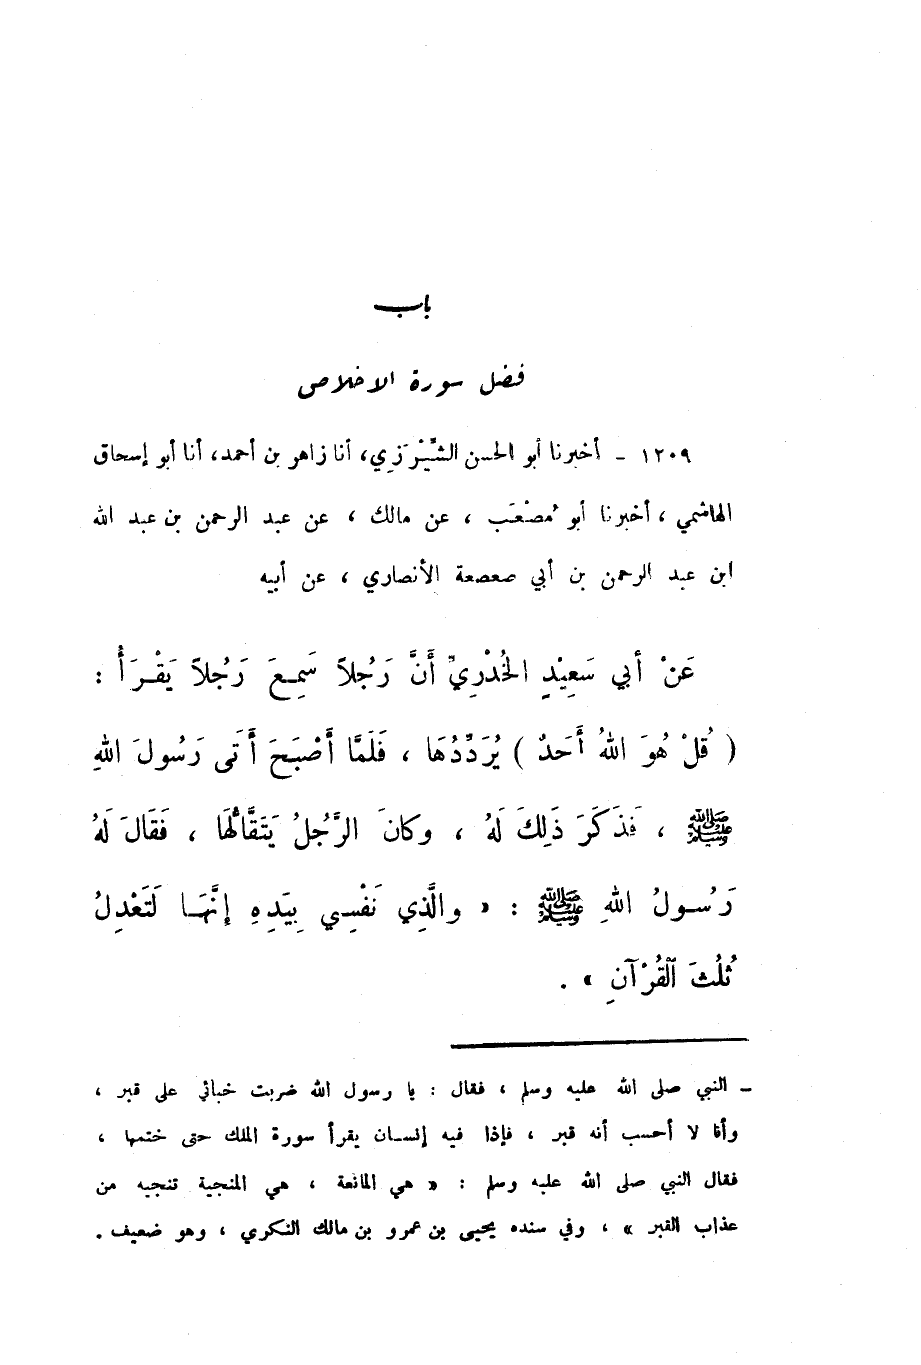 باب
فضل سورة الاخلاص
١٢٠٩ - أخبرنا أبو الحسن الشِّيْرَزي، أنا زاهر بن أحمد، أنا أبو إسحاق
الهاشمي ، أخبرنا أبو مُصْعَب ، عن مالك ، عن عبد الرحمن بن عبد الله
ابن عبد الرحمن بن أبي صعصعة الأنصاري ، عن أبيه
عَنْ أبي سَعِيْدٍ الخُدْرِيِّ أَنَّ رَجُلاً سَمِعَ رَجُلاً يَقْرَأُ :
( قُلْ هُوَ اللهُ أَحَدٌ ) يُرَدِّدُهَا ، فَلَمَّا أَصْبَحَ أَتَى رَسُولَ اللهِ
ﷺ ، فَذَكَرَ ذَلِكَ لَهُ ، وكانَ الرَّجُلُ يَتَقَالُّهَا ، فَقَالَ لَهُ
رَسُولُ اللهِ ﷺ : « والَّذِي نَفْسِي بِيَدِهِ إِنَّهَا لَتَعْدِلُ
ثُلُثَ القُرْآنِ » .
- النبي صلى الله عليه وسلم ، فقال : يا رسول الله ضربت خبائي على قبر ،
وأنا لا أحسب أنه قبر ، فإذا فيه إنسان يقرأ سورة الملك حتى ختمها ،
فقال النبي صلى الله عليه وسلم : « هي المانعة ، هي المنجية تنجيه من
عذاب القبر » ، وفي سنده يحيى بن عمرو بن مالك النكري ، وهو ضعيف .